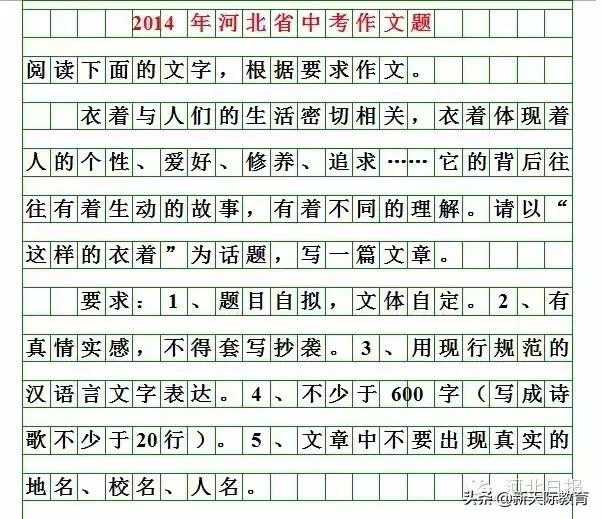 2014年河北省中考作文题
阅读下面的文字，根据要求作文。
衣着与人们的生活密切相关，衣着体现着
人的个性、爱好、修养、追求……它的背后往
往有着生动的故事，有着不同的理解。请以“
这样的衣着”为话题，写一篇文章。
要求：1、题目自拟，文体自定。2、有
真情实感，不得套写抄袭。3、用现行规范的
汉语言文字表达。4、不少于600字（写成诗
歌不少于20行）。5、文章中不要出现真实的
地名、校名、人名。
河北日报
头条@新天际教育